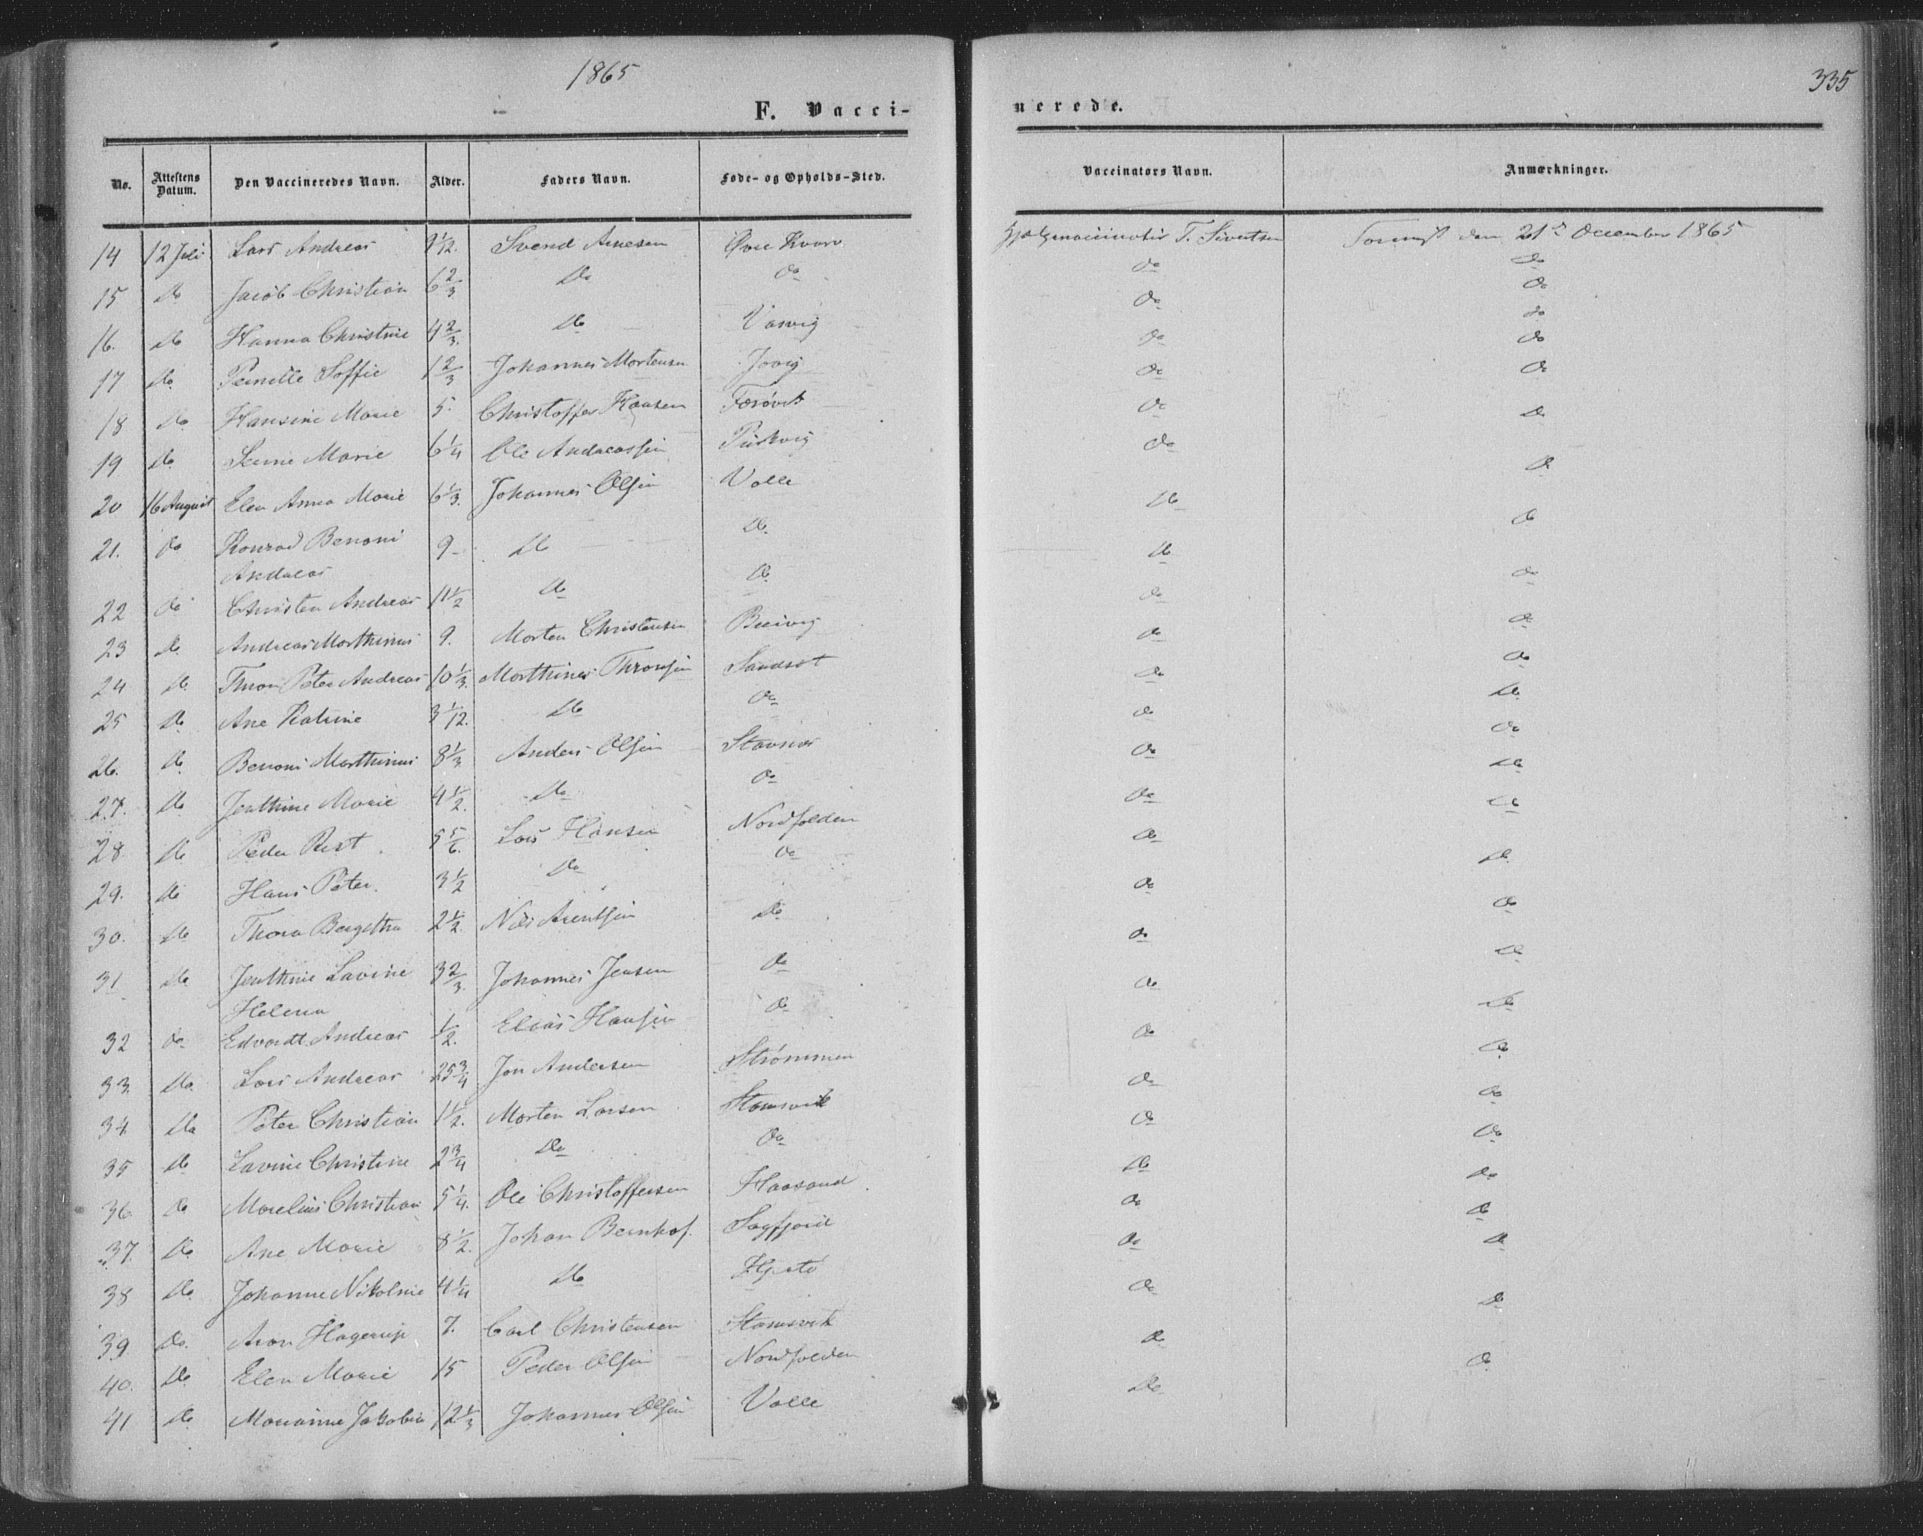 1865
335
F. Vacci-
nerede.
No. Attestens Datum. Den Vaccineredes Navn. Alder. Faders Navn. Føde- og Opholds-Sted. Vaccinators Navn. Anmærkninger.
14 12 Juli Lars Andreas Svend Arnesen T. Sivertsen den 21de December 1865
15 do Jacob Christian 6 2/3 Do do do do
16. do Hanna Christine 4 2/3. Do do do
17 do Pernelle Soffie 1 2/3 Johannes Mortensen do do
18 do Hansine Marie 5. Christoffer Hansen do do
19 do Marie 6 1/4 Ole Andreassen do do
20 16 August Elen Anna Marie 6 1/3. Johannes Olsen Valle do do
21. do Konrad Benoni 9 Do do do do
Andreas
22 do Christen Andreas 11 1/2 do do do do
23 do Andreas Morthinus 9. Morten Christensen do do
24 do Thron Peter Andreas 10 1/3. Morthines Thronsen Sandset do do
25 do Ane Katrine 3 1/12. Do do do do
26. do Benoni Morthinus 8 1/3 Anders Olsen Stavnes do do
27. do Jenthine Marie 4 1/2. Do do do do
28. do Peder Rist. 5 5/6. Lars Hansen Nordfolden do do
29. do Hans Peter. 3 1/2 Do do do do
30. do Thora Bergitha 2 1/2. Nils Arentsen do do do
31 do Jenthine Lavine 3 2/3. Johannes Jensen do do do
Helena
32 do Edvardt Andreas 1/2. Elias Hansen do do do
33. do Lars Andreas 25 3/4 Jon Andersen Strømmen do do
34. do Peter Christian 1 1/2. Morten Larsen Stamsvik do do
35 do Lavine Christine 2 3/4 Do do do do
36. do Marelius Christian 5 1/4. Ole Christoffersen do do
37. do Ane Marie 8 1/2. Johan Bernhof. Sagfjord do do
38 do Johanne Nikoline 4 1/4 Do do do
39 do Aron Hagerup 7. Carl Christensen Stamsvik do
40. do Elen Marie 15 Peder Olsen Nordfolden do do
41 do Marianne Jakobia 12 1/3 Johannes Olsen Valle do